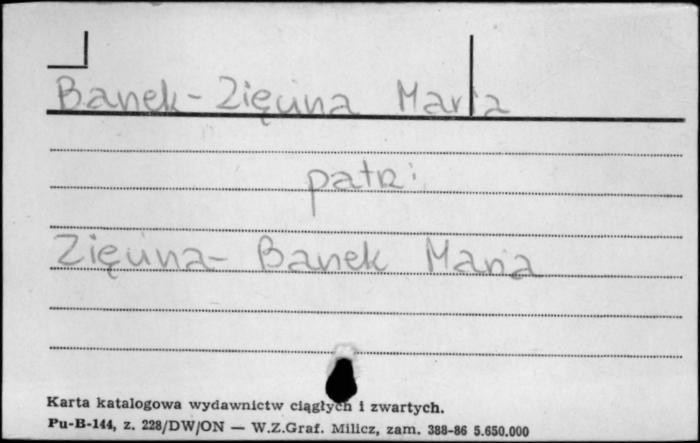 Banek-Zięcina Maria
patrz:
Zięcina-Banek Maria
Karta katalogowa wydawnictw ciągłych i zwartych.
Pu-B-144, z. 228/DW/ON — W.Z.Graf. Milicz, zam. 388-86 5.650.000